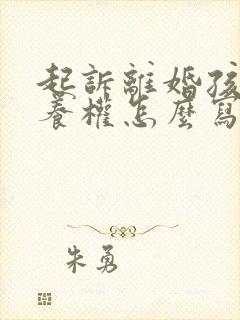 起訴離婚孩
養權怎麼寫
朱勇